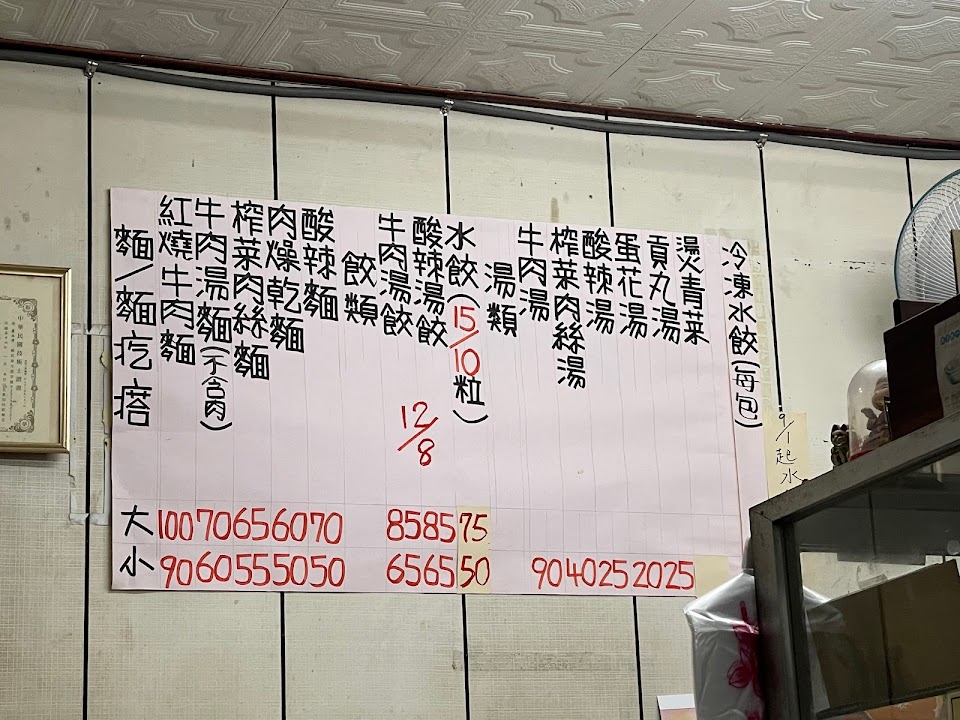 麵/麵疙瘩
紅燒牛肉麵
牛肉湯麵(不含肉)
榨菜肉絲麵
肉燥乾麵
酸辣麵
餃類
牛肉湯餃
酸辣湯餃
12/8
水餃(15/10粒)
湯類
牛肉湯
榨菜肉絲湯
酸辣湯
蛋花湯
貢丸湯
燙青菜
冷凍水餃(每包)
大 100 70 65 60 70 85 85 75
小 90 60 55 50 50 65 65 50 90 40 25 20 25
9/1起水